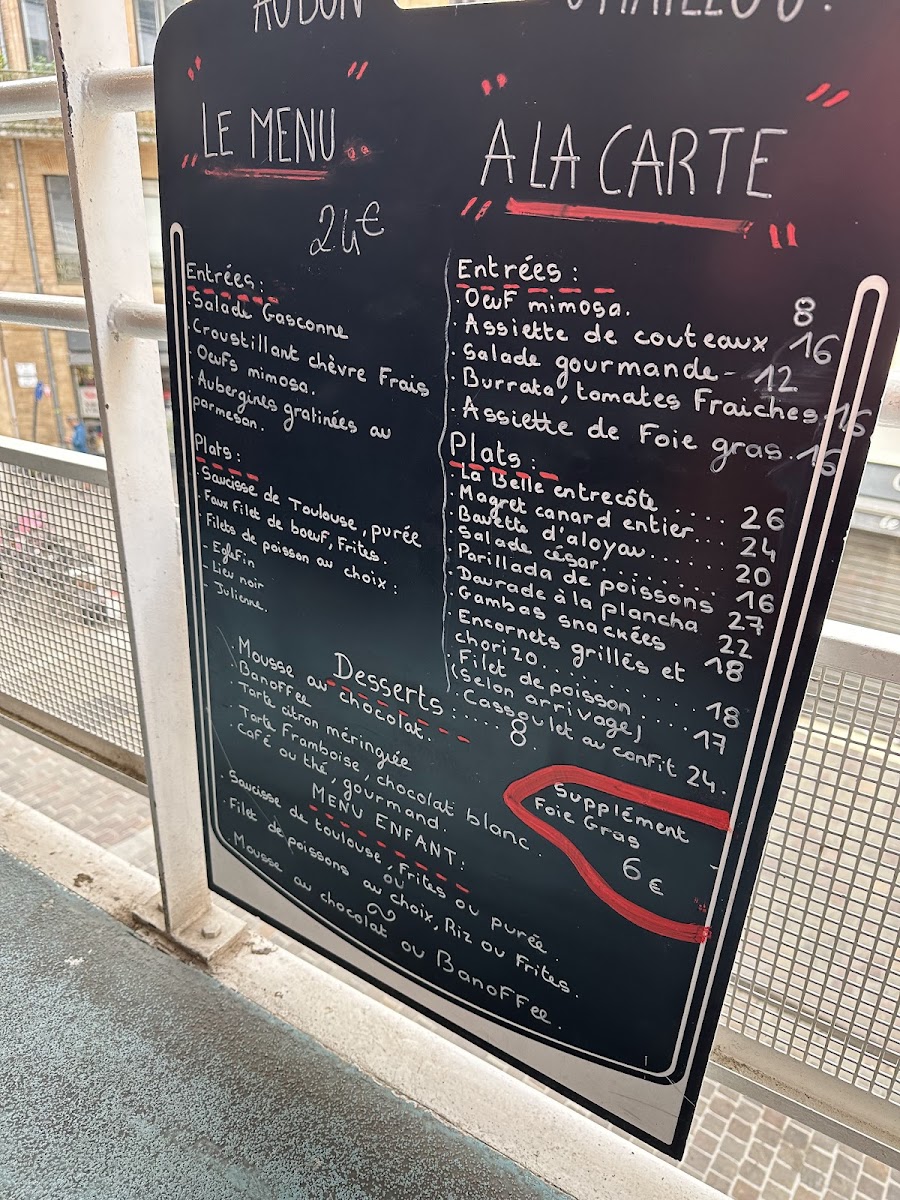 AU BON
LE MENU
24€
Entrées :
. Salade Gasconne
. Croustillant chèvre Frais
. OeuFs mimosa.
. Aubergines gratinées au
parmesan.
Plats :
. Saucisse de Toulouse, purée
. Faux Filet de boeuf, Frites.
. Filets de poisson au choix :
- EgleFin
- Lieu noir
- Julienne.
A LA CARTE
Entrées :
. OeuF mimosa. 8
. Assiette de couteaux 16
. Salade gourmande - 12
. Burrata, tomates Fraiches. 16
. Assiette de Foie gras . 16
Plats :
. La Belle entrecôte ..... 26
. Magret canard entier... 24
. Bavette d'aloyau........ 20
. Salade césar........... 16
. Parillada de poissons 27
. Daurade à la plancha 22
. Gambas snackées 18
. Encornets grillés et
chorizo............ 18
. Filet de poisson ..... 17
(Selon arrivage)
. Cassoulet au confit 24.
Desserts : ..... 8.
. Mousse au chocolat.
. Banoffee
. Tarte citron méringuée
. Tarte Framboise, chocolat blanc.
. Café ou thé, gourmand.
Supplément
Foie Gras
6 €
MENU ENFANT :
. Saucisse de toulouse, Frites ou purée.
ou
. Filet de poissons au choix, Riz ou Frites.
. Mousse au chocolat ou BanoFFee.